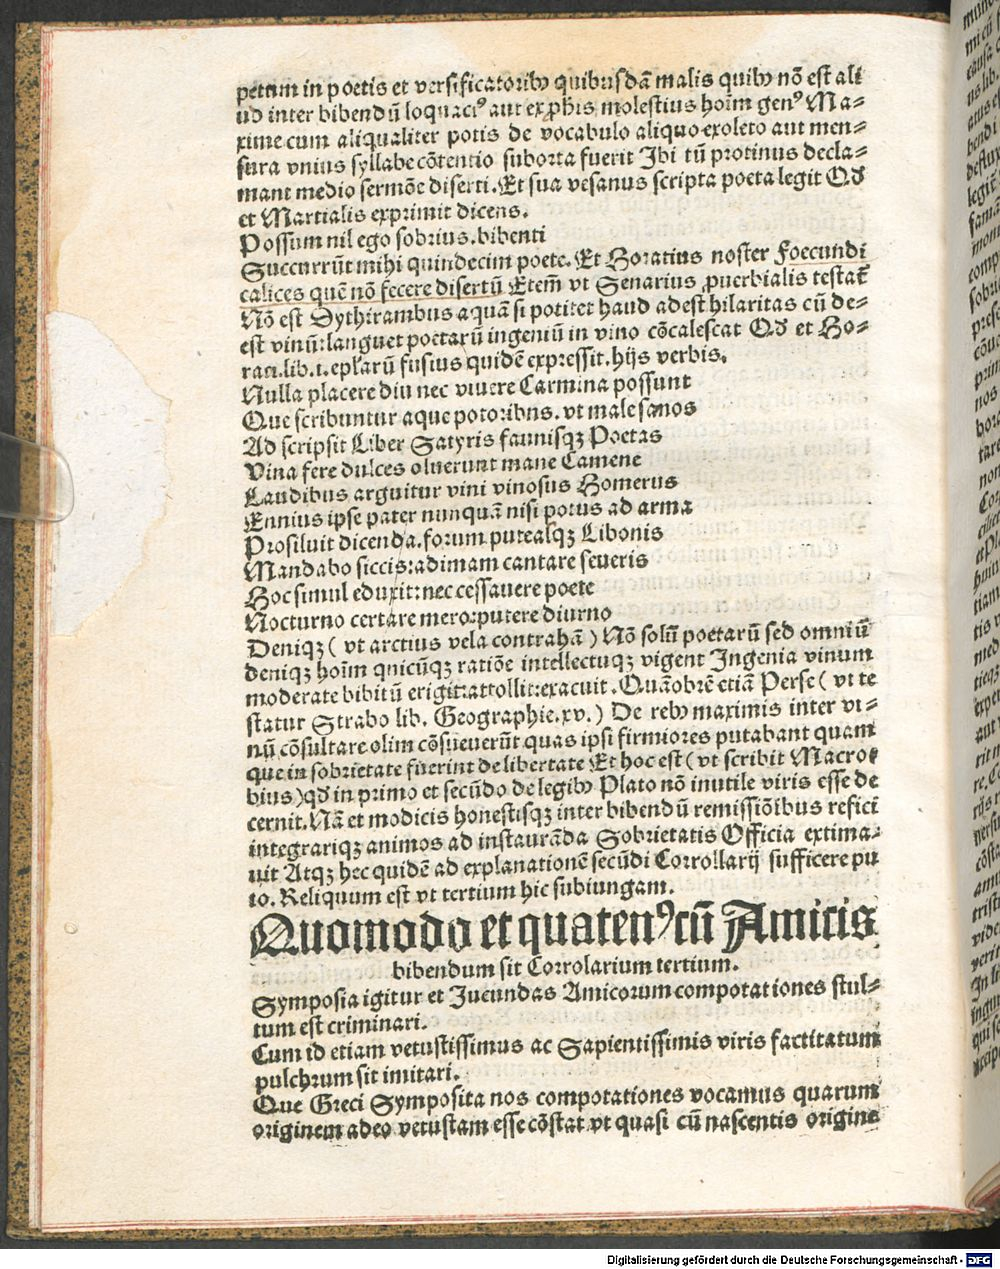 petum in poetis et versificatoribꝰ quibusdā malis quibꝰ nō est ali
ud inter bibendū loquaciꝰ aut ex ꝓbris molestius hoīm genꝰ Ma=
xime cum aliqualiter potis de vocabulo aliquo exoleto aut men=
sura vnius syllabe cōtentio suborta fuerit Ibi tū protinus decla=
mant medio sermōe diserti. Et sua vesanus scripta poeta legit Qd
et Martialis exprimit dicens.
Possum nil ego sobrius. bibenti
Succurrūt mihi quindecim poete. Et Horatius noster Foecundi
calices quē nō fecere disertū Etem̄ vt Senarius ꝓuerbialis testat̄
Nō est Dythirambus aquā si potitet haud adest hilaritas cū de=
est vinū: languet poetarū ingeniū in vino cōcalescat Qd et Ho=
raci. lib. i. eplarū fusius quidē expressit. hijs verbis.
Nulla placere diu nec viuere Carmina possunt
Que scribuntur aque potoribus. vt male sanos
Ad scripsit Liber Satyris faunisqꝫ Poetas
Vina fere dulces oluerunt mane Camene
Laudibus arguitur vini vinosus Homerus
Ennius ipse pater nunquā nisi potus ad arma
Prosiluit dicenda. forum putealqꝫ Libonis
Mandabo siccis: adimam cantare seueris
Hoc simul eduxit: nec cessauere poete
Nocturno certare mero: putere diurno
Deniqꝫ ( vt arctius vela contrahā ) Nō solū poetarū sed omniū
deniqꝫ hoīm quicūqꝫ ratiōe intellectuqꝫ vigent Ingenia vinum
moderate bibitū erigit: attollit: exacuit. Quāobrē etiā Perse ( vt te
statur Strabo lib. Geographie. xv. ) De rebꝰ maximis inter vi=
nū cōsultare olim cōsueuerūt quas ipsi firmiores putabant quam
que in sobrietate fuerint de libertate Et hoc est ( vt scribit Macro=
bius ) qd in primo et secūdo de legibꝰ Plato nō inutile viris esse de
cernit. Nā et modicis honestisqꝫ inter bibendū remissiōibus refici
integrariqꝫ animos ad instaurāda Sobrietatis Officia extima=
uit Atqꝫ hec quidē ad explanationē secūdi Corrollarij sufficere pu
to. Reliquum est vt tertium hic subiungam.
Quomodo et quatenꝰ cū Amicis
bibendum sit Corrolarium tertium.
Symposia igitur et Iucundas Amicorum compotationes stul=
tum est criminari.
Cum id etiam vetustissimus ac Sapientissimis viris factitatum
pulchrum sit imitari.
Que Greci Symposita nos compotationes vocamus quarum
originem adeo vetustam esse cōstat vt quasi cū nascentis origine
Digitalisierung gefördert durch die Deutsche Forschungsgemeinschaft - DFG